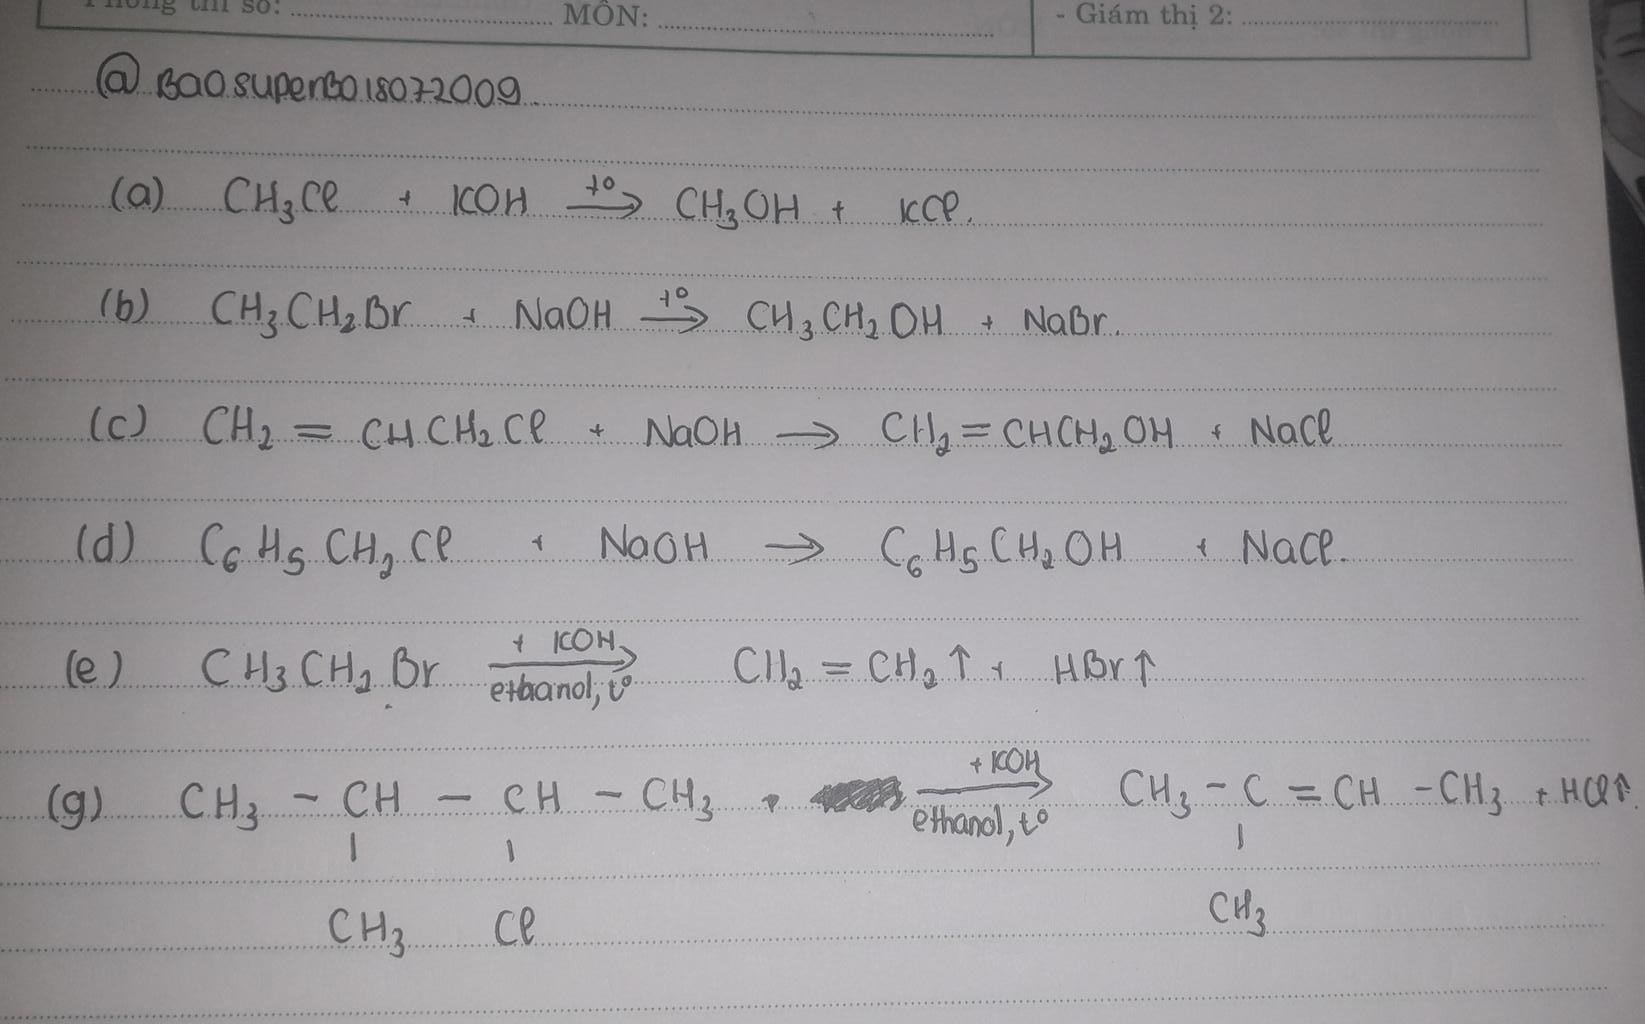 Phòng thi số: ........................ MÔN: ........................ - Giám thị 2: ........................
@BaosuperBo18072009
(a) CH₃Cl + KOH →(t°) CH₃OH + KCl.
(b) CH₃CH₂Br + NaOH →(t°) CH₃CH₂OH + NaBr.
(c) CH₂ = CHCH₂Cl + NaOH → CH₂=CHCH₂OH + NaCl
(d) C₆H₅CH₂Cl + NaOH → C₆H₅CH₂OH + NaCl.
(e) CH₃CH₂Br →(+ KOH, ethanol, t°) CH₂ = CH₂↑ + HBr↑
(g) CH₃ – CH – CH – CH₃ + →(+KOH, ethanol, t°) CH₃ – C = CH – CH₃ + HCl↑.
CH₃ Cl CH₃